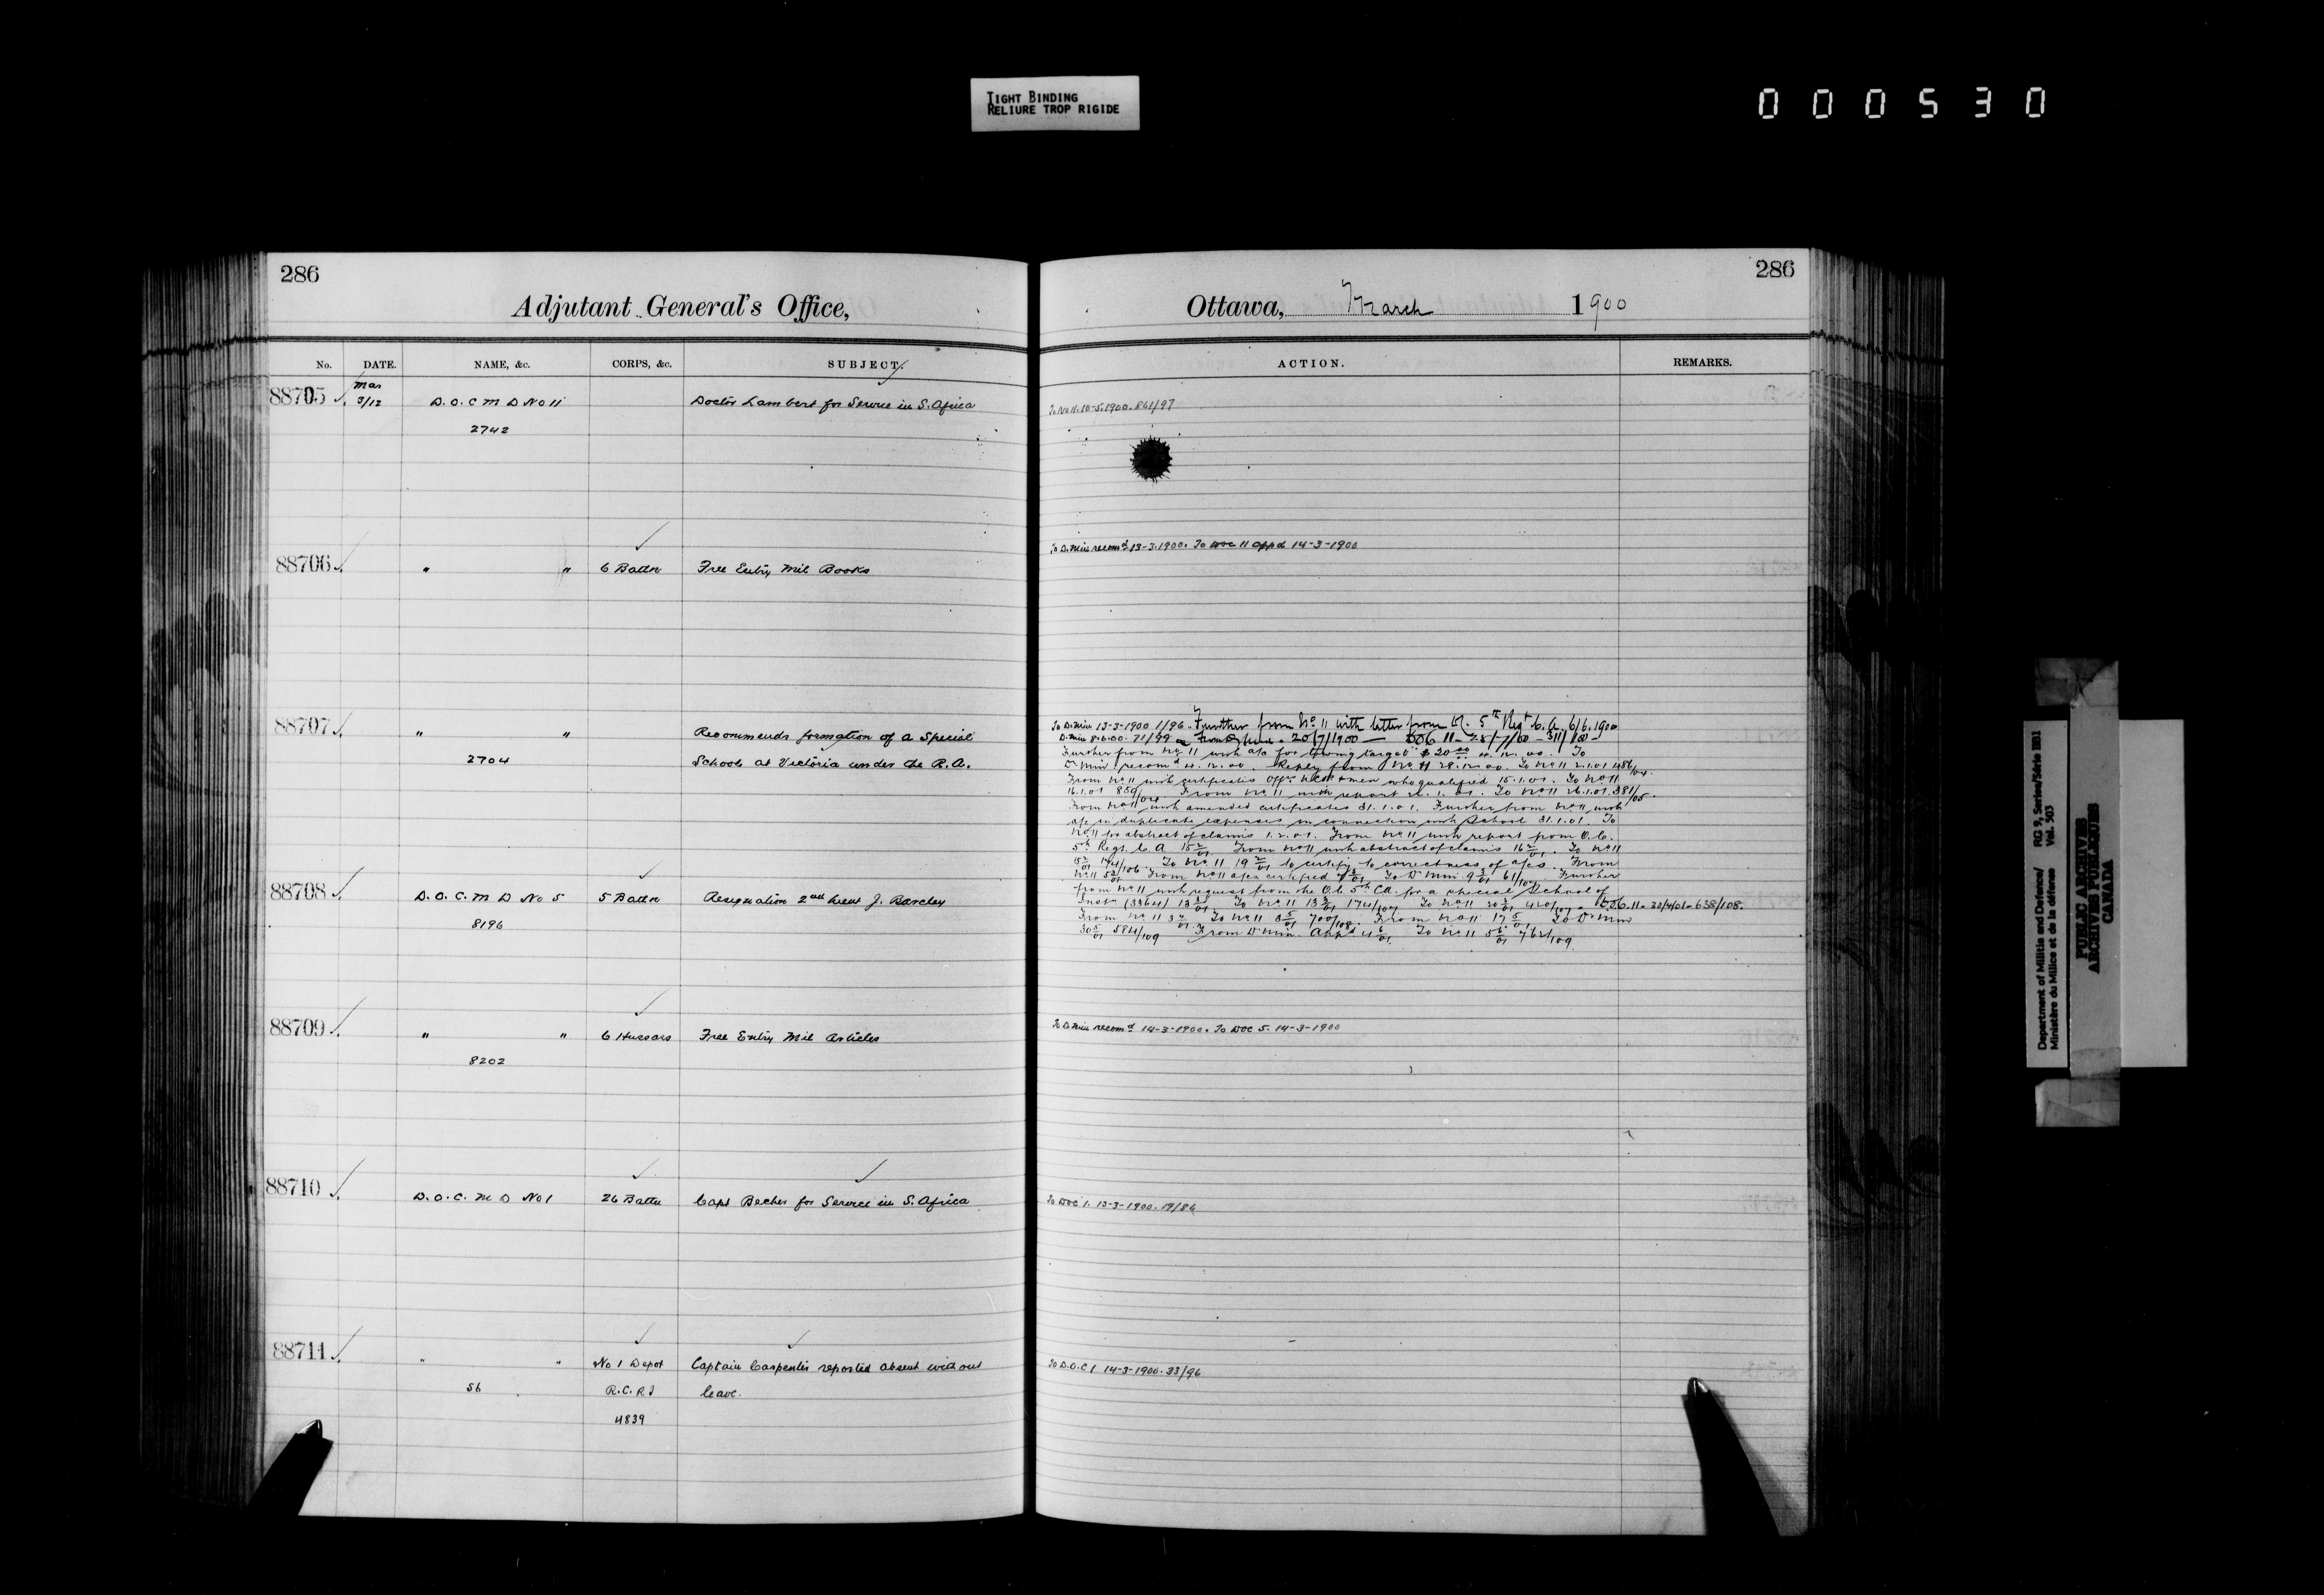 TIGHT BINDING
RELIURE TROP RIGIDE
000530
286
Adjutant General's Office,
No. DATE. NAME, &c. CORPS, &c. SUBJECT.
88705 Mar 3/12 D.O.C M D No 11 Doctor Lambert for Service in S. Africa
2742
88706 " " 6 Battn Free Entry Mil Books
88707 " " Recommends formation of a Special
2704 School at Victoria under the R.A.
88708 D.O.C. M D No 5 5 Battn Resignation 2nd Lieut J. Barclay
8196
88709 " " 6 Hussars Free Entry Mil Articles
8202
88710 D.O.C. M D No 1 26 Battn Capt Becher for Service in S. Africa
88711 " " No 1 Depot Captain Carpenter reported absent without
56 R.C.R.I leave.
4839
286
Ottawa, March 1900
ACTION. REMARKS.
To No 11. 10-5-1900. 861/97
To D. Min recomd 13-3-1900. To DOC 11 appd 14-3-1900
To D. Min 13-3-1900 1/96. Further from No 11 with letter from 5th Regt C.A. 6/6.1900
D. Min 8.6.00. 71/99 20/7/1900
Further from No 11 with a/c for towing target $20 To
D Min. recomd Reply from No 11 To No 11 2.1.01
From No 11 with certificates men who qualified 15.1.01. To No 11
16.1.01 From No 11 with report To No 11 381/05.
From No 11 with amended certificates 31.1.01. Further from No 11 with
a/c in duplicate expenses in connection with School 31.1.01. To
No 11 for abstract of claims 1.2.01. From No 11 with report from O.C.
5th Regt. C.A 15 2/01. From No 11 with abstract of claims 16 2/01. To No 11
To No 11 19 2/01 to certify to correctness of a/cs. From
No 11 From No 11 a/cs certified To D Min. 9 3/01 61/107 Further
from No 11 with request from the O.C. 5th CA. for a special School of
Instn (3364) 13 3/01. To No 11 13 3/01 174/107 To No 11 20 3/01 420/107 - D.O.C. 11 - 30/4/01 - 638/108.
From No 11 To No 11 3 5/01 700/108. From No 11 17 5/01 To D Min
30 5/01 584/109 From D Min. Appd 4 6/01. To No 11 5 6/01 762/109.
To D. Min recomd 14-3-1900. To DOC 5. 14-3-1900
To DOC 1. 13-3-1900. 19/86
To D.O.C 1 14-3-1900. 33/96
Department of Militia and Defence/ RG 9, Series/Série IIB1
Ministère du Milice et de la défense Vol. 503
PUBLIC ARCHIVES
ARCHIVES PUBLIQUES
CANADA